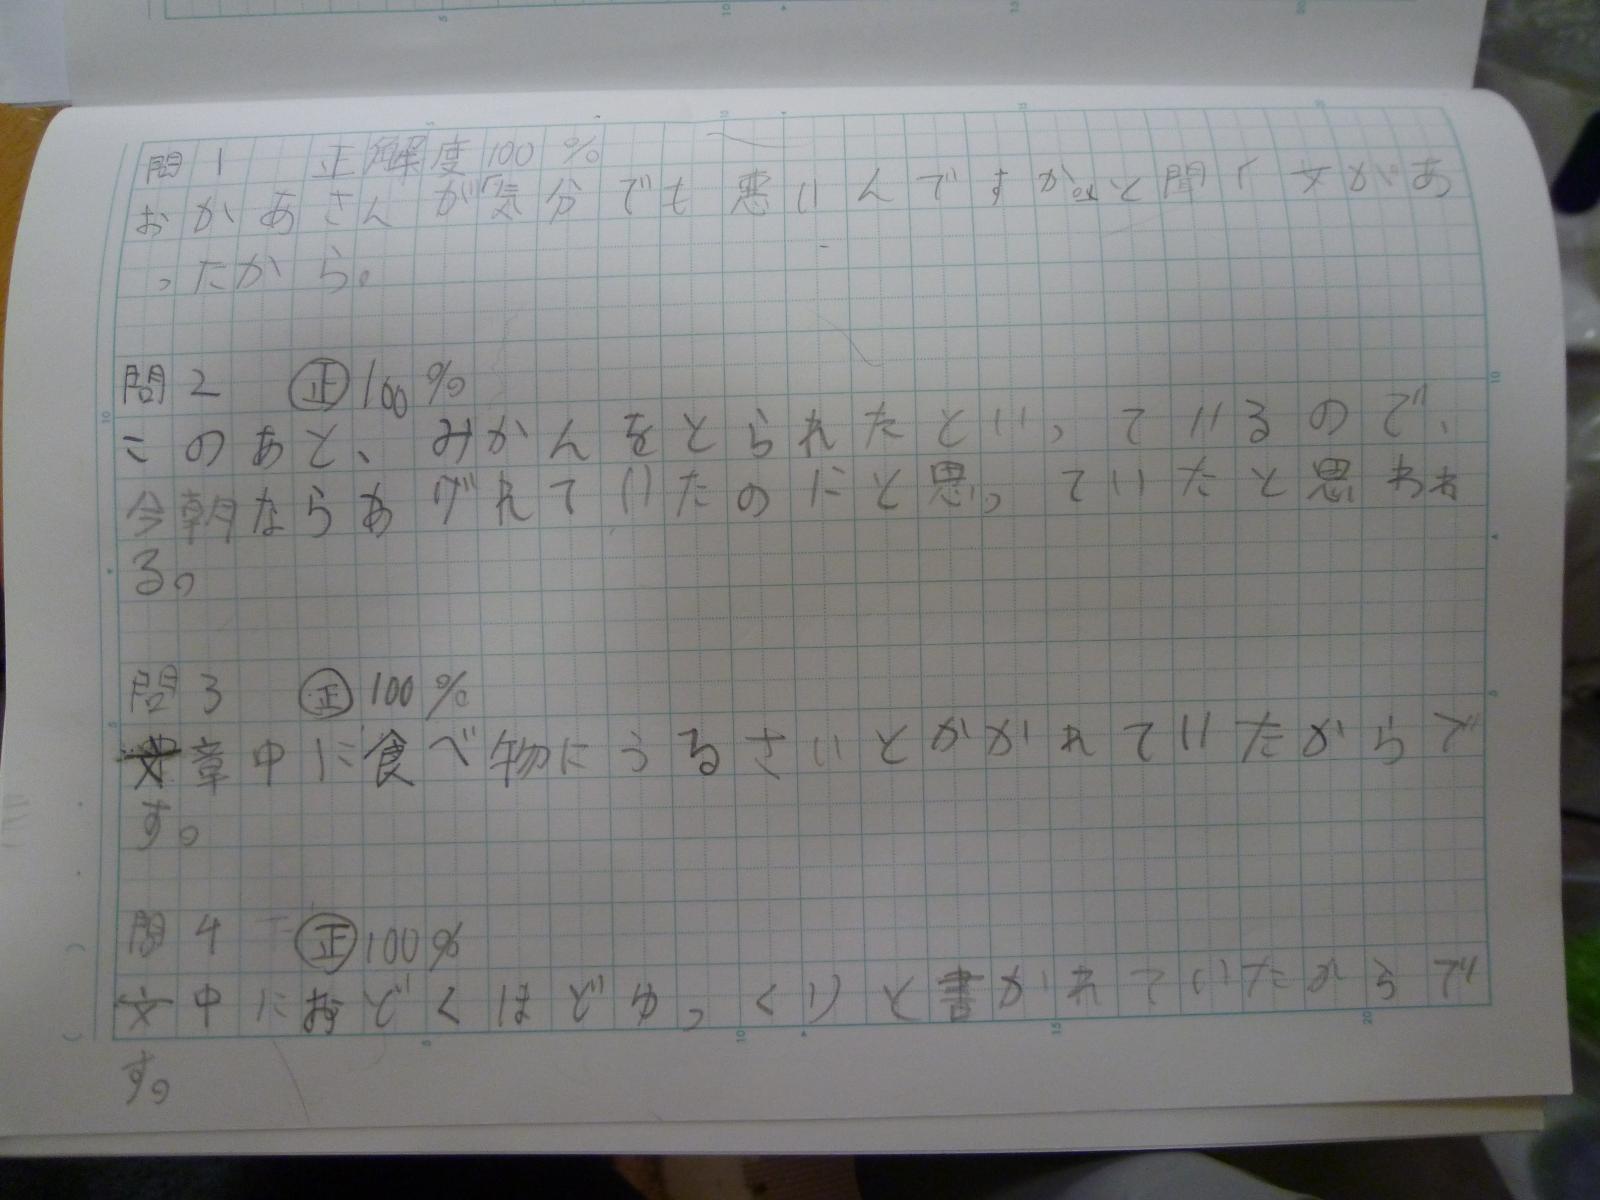 問1 正解度100%
おかあさんが気分でも悪いんですか。と聞く文があ
ったから。
問2 正 100%
このあと、みかんをとられたといっているので、
今朝ならあげれていたのにと思っていたと思われ
る。
問3 正 100%
文章中に食べ物にうるさいとかかれていたからで
す。
問4 正 100%
文中におどくほどゆっくりと書かれていたからで
す。